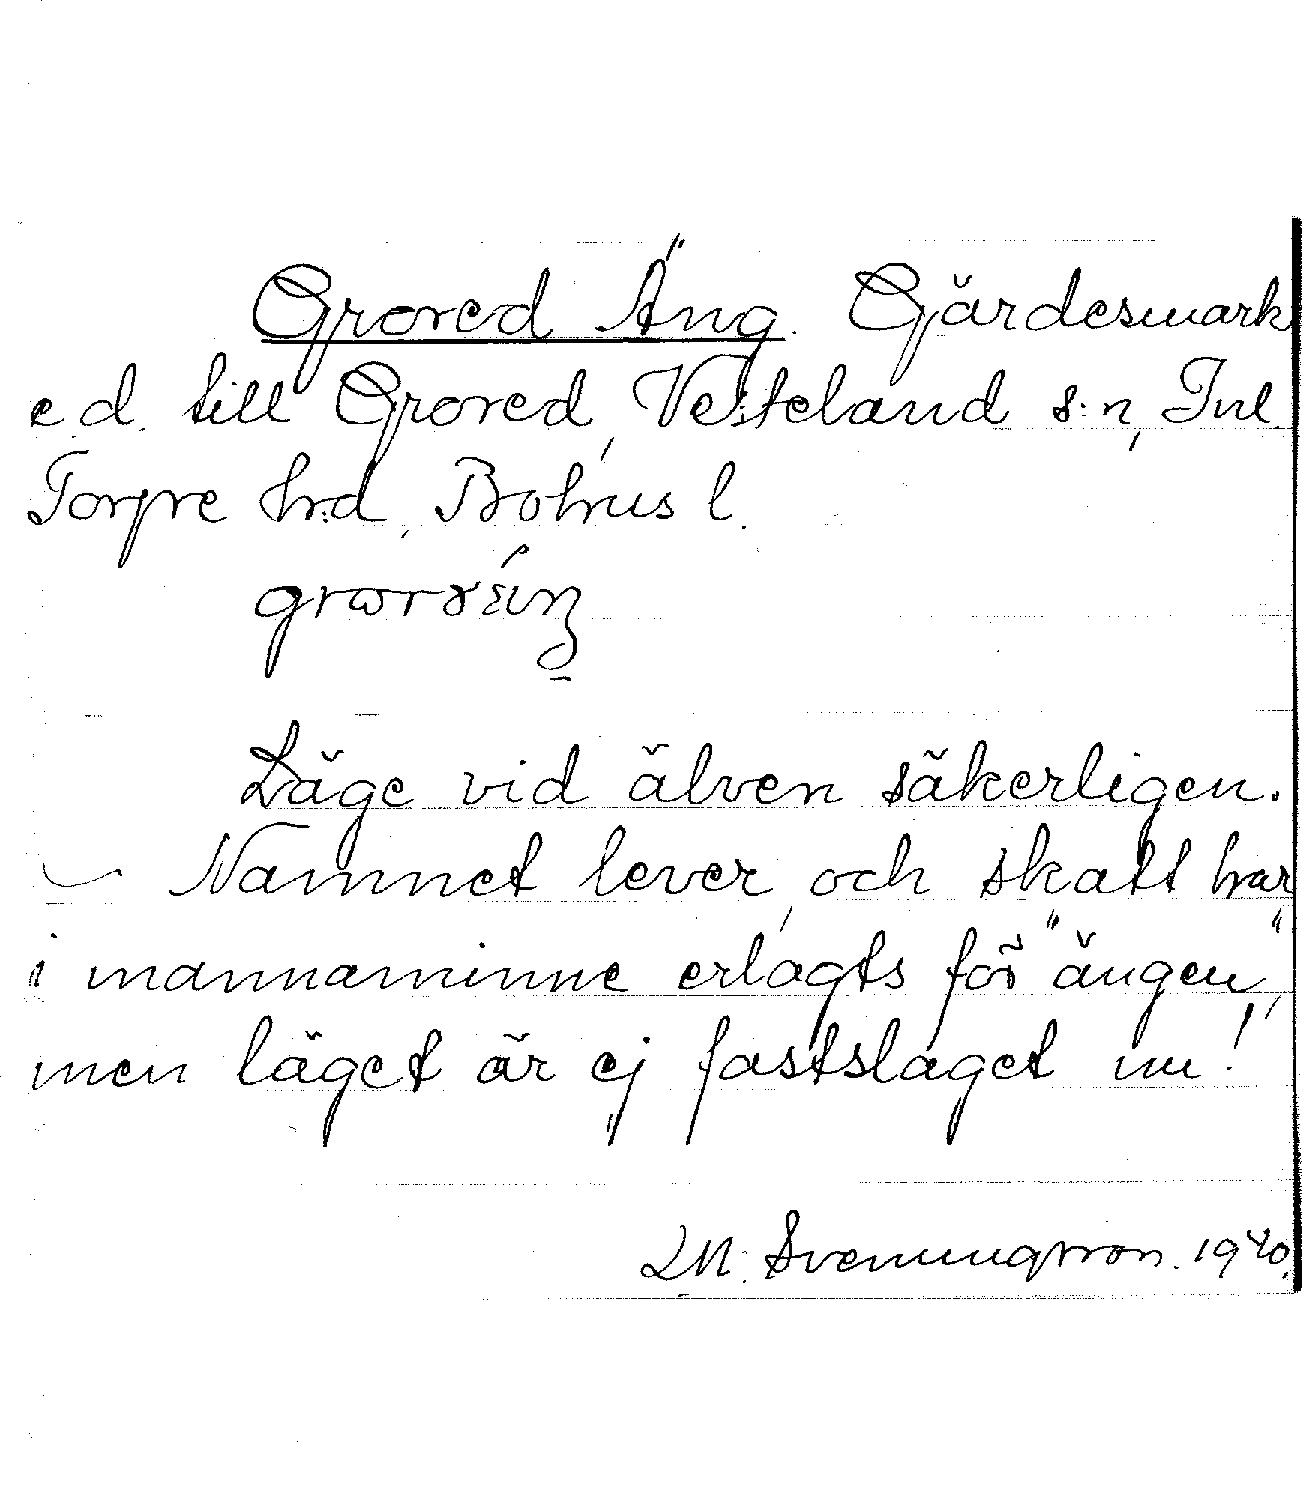 Grored Äng. Gärdesmark
e.d. till Grored, Vesteland s:n, Inl.
Torpre hrd, Bohus l.
Läge vid älven säkerligen.
Namnet lever, och skatt har
i mannaminne erlagts för "ängen",
men läget är ej fastslaget nu!
LM. Svenungsson. 1940.